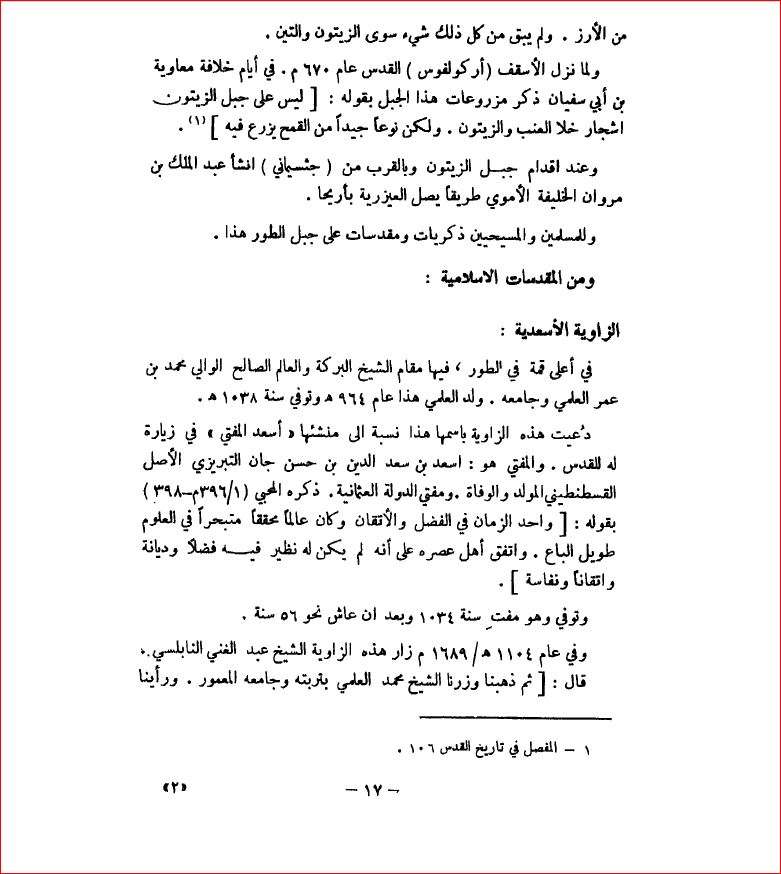 من الأرز . ولم يبق من كل ذلك شيء سوى الزيتون والتين .
ولما نزل الأسقف (أركولفوس) القدس عام ٦٧٠ م . في أيام خلافة معاوية
بن أبي سفيان ذكر مزروعات هذا الجبل بقوله : [ ليس على جبل الزيتون
اشجار خلا العنب والزيتون . ولكن نوعاً جيداً من القمح يزرع فيه ] (١) .
وعند اقدام جبـل الزيتون وبالقرب من ( جثسيماني ) انشأ عبد الملك بن
مروان الخليفة الأموي طريقاً يصل العيزرية بأريحا .
وللمسلمين والمسيحيين ذكريات ومقدسات على جبل الطور هذا .
ومن المقدسات الاسلامية :
الزاوية الأسعدية :
في أعلى قمة في الطور ، فيها مقام الشيخ البركة والعالم الصالح الوالي محمد بن
عمر العلمي وجامعه . ولد العلمي هذا عام ٩٦٤ ه وتوفي سنة ١٠٣٨ ه .
دُعيت هذه الزاوية باسمها هذا نسبة الى منشئها « أسعد المفتي » في زيارة
له للقدس . والمفتي هو : اسعد بن سعد الدين بن حسن جان التبريزي الأصل
القسطنطيني المولد والوفاة . ومفتي الدولة العثمانية . ذكره المحبي (٣٩٦/١م–٣٩٨ )
بقوله : [ واحد الزمان في الفضل والأتقان وكان عالماً محققاً متبحراً في العلوم
طويل الباع . واتفق أهل عصره على أنه لم يكن له نظير فيـه فضلاً وديانة
واتقاناً ونفاسة ] .
وتوفي وهو مفتٍ سنة ١٠٣٤ وبعد ان عاش نحو ٥٦ سنة .
وفي عام ١١٠٤ ه / ١٦٨٩ م زار هذه الزاوية الشيخ عبد الغني النابلسي .
قال : [ ثم ذهبنا وزرنا الشيخ محمد العلمي بتربته وجامعه المعمور . ورأينا
١ – المفصل في تاريخ القدس ١٠٦ .
– ١٧ –
«٢»